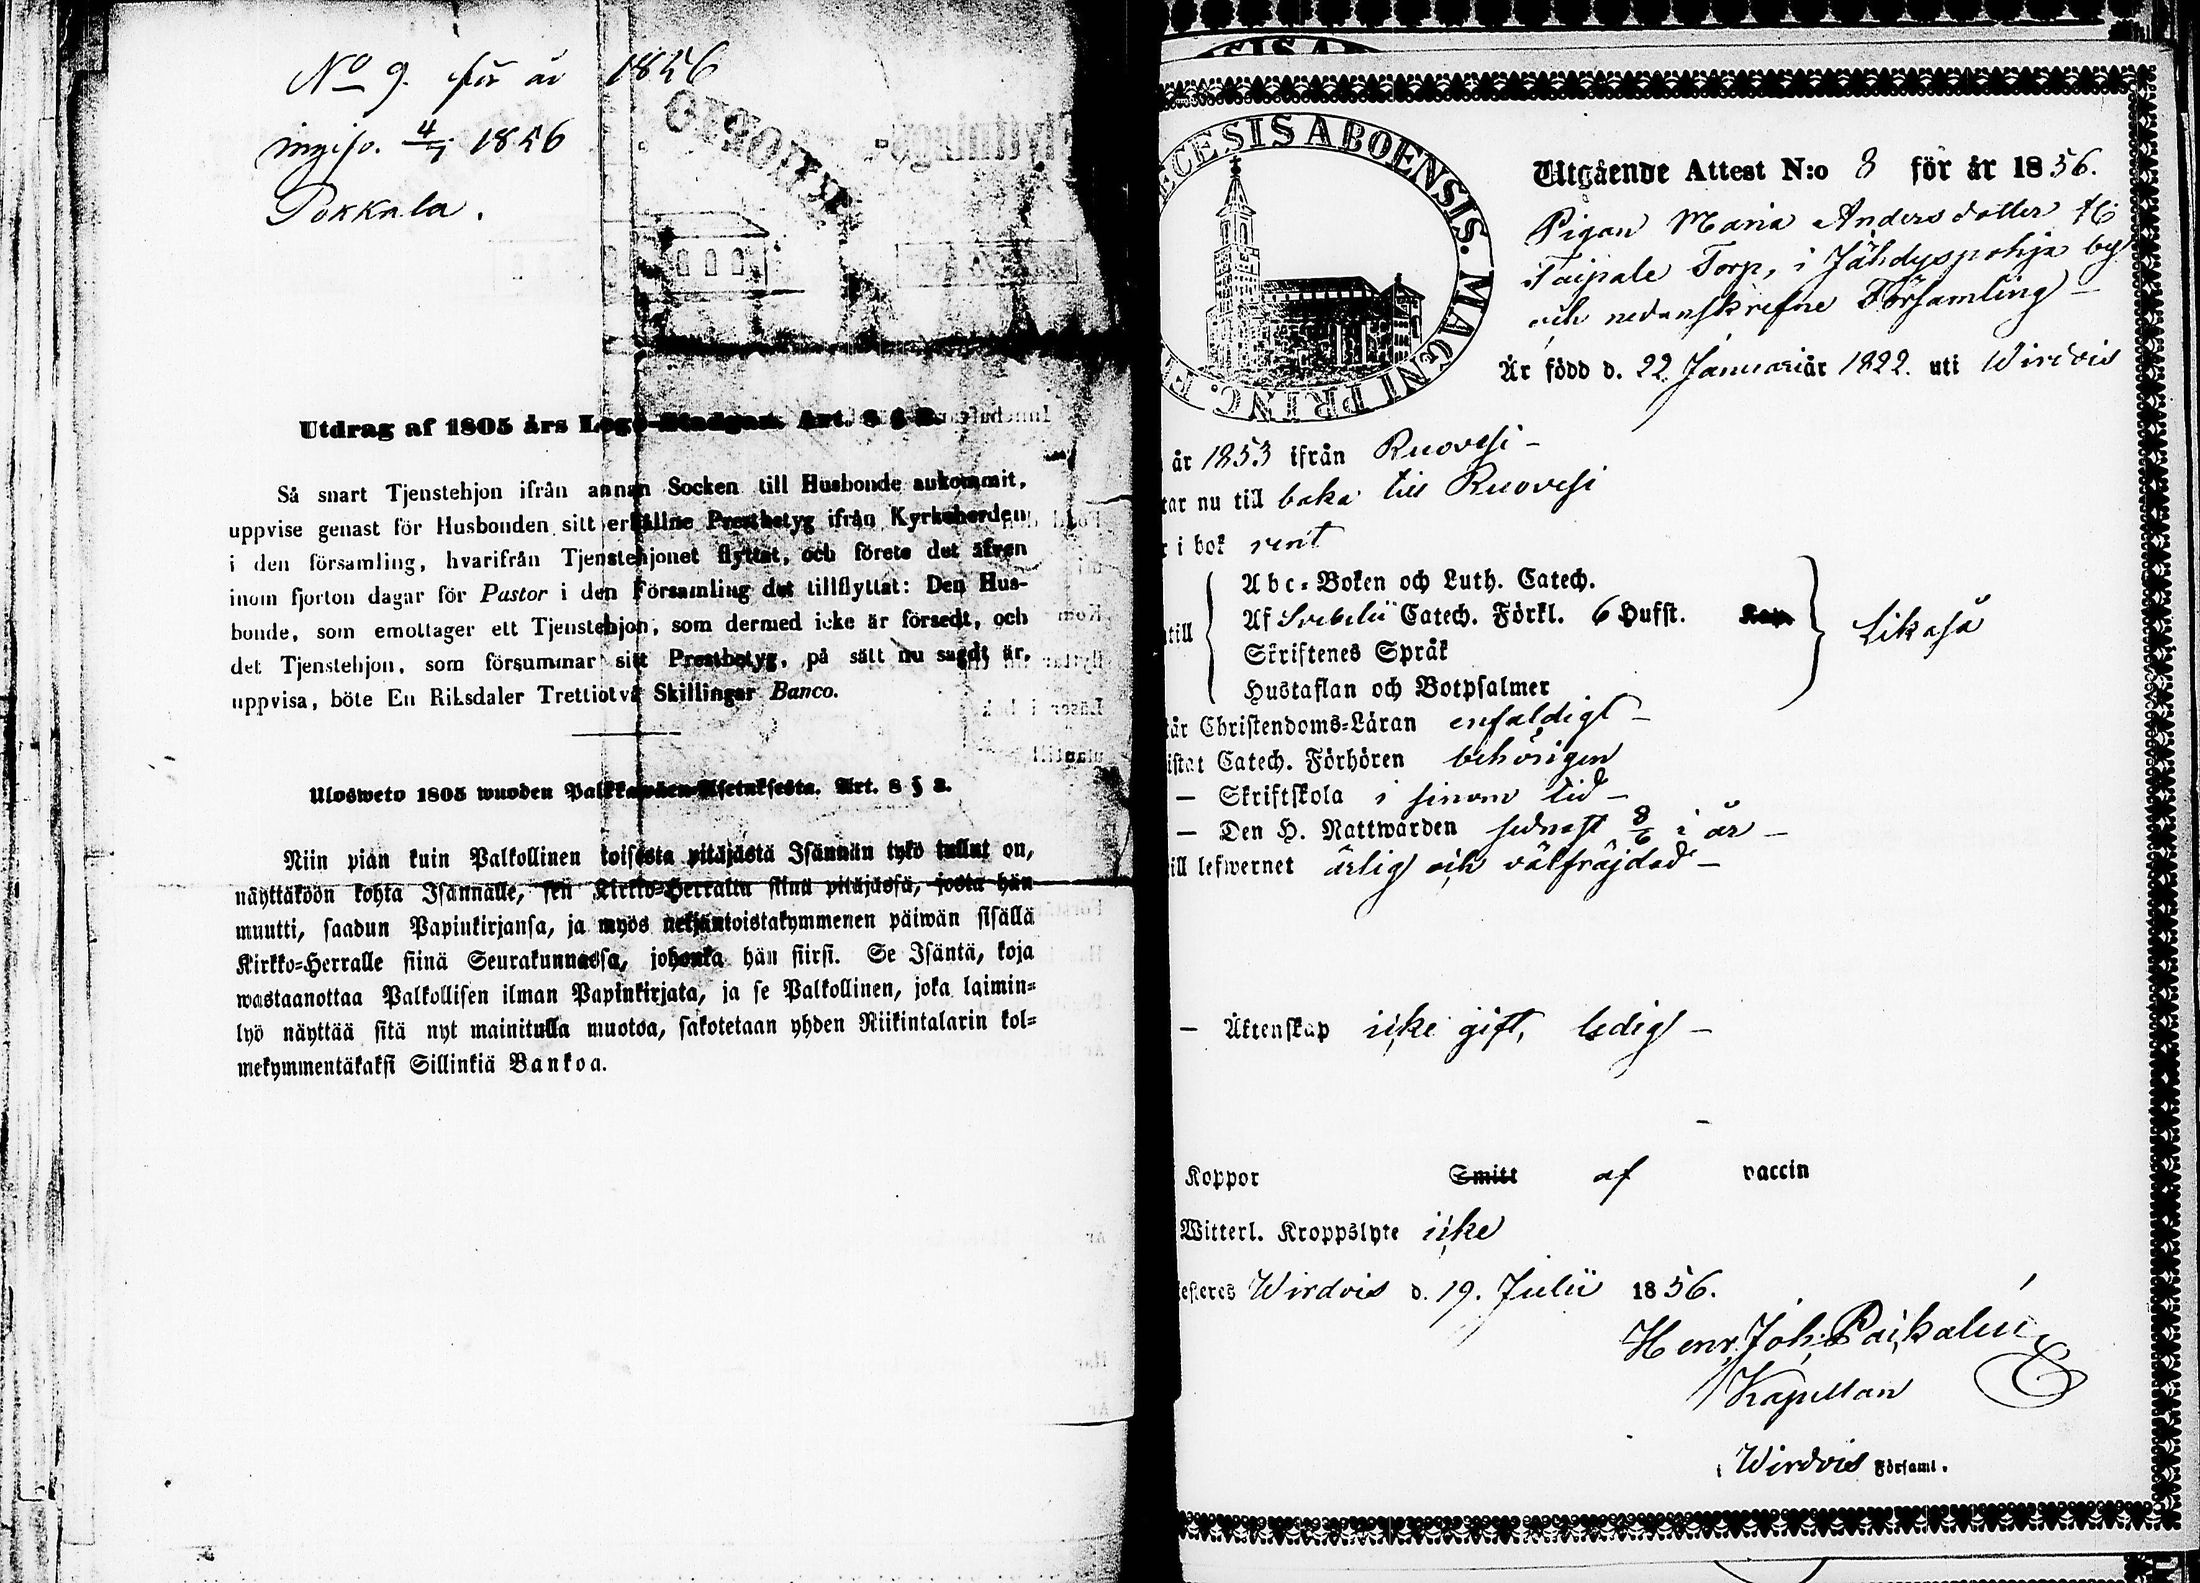 No 9. för år 1856
4/7 1856
Pokkala.
Utdrag af 1805 års Lego-Stadgan. Art. 8 § 2.
Så snart Tjenstehjon ifrån annan Socken till Husbonde ankommit,
uppvise genast för Husbonden sitt erhållne Prestbetyg ifrån Kyrkoherden
i den församling, hvarifrån Tjenstehjonet flyttat, och förete det äfven
inom fjorton dagar för Pastor i den Församling det tillflyttat: Den Hus-
bonde, som emottager ett Tjenstehjon, som dermed icke är försedt, och
det Tjenstehjon, som försummar sitt Prestbetyg, på sätt nu sagdt är,
uppvisa, böte En Riksdaler Trettiotvå Skillingar Banco.
Ulosweto 1805 wuoden Palkkawäen-Asetuksesta. Art. 8 § 2.
Niin pian kuin Palkollinen toisesta pitäjästä Isännän tykö tullut on,
näyttäköön kohta Isännälle, sen Kirkko-Herralta siinä pitäjässä, josta hän
muutti, saadun Papinkirjansa, ja myös neljäntoistakymmenen päiwän sisällä
Kirkko-Herralle siinä Seurakunnassa, johonka hän siirsi. Se Isäntä, koja
wastaanottaa Palkollisen ilman Papinkirjata, ja se Palkollinen, joka laimin-
lyö näyttää sitä nyt mainitulla muotoa, sakotetaan yhden Riikintalarin kol-
mekymmentäkaksi Sillinkiä Bankoa.
ECESIS ABOENSIS. MAGNI PRINC. F
Utgående Attest N:o 8 för år 1856.
Pigan Maria Andersdotter
Taipale Torp, i Jähdyspohja by
och nedanskrefne Församling –
Är född d. 22 Januari år 1822. uti Wirdois
år 1853 ifrån Ruovesi –
tar nu till baka till Ruovesi
r i bok rent
till
Abc-Boken och Luth. Catech.
Af Svebelii Catech. Förkl. 6 Hufst. Kap.
Skriftenes Språk
Hustaflan och Botpsalmer
Likaså
tår Christendoms-Läran enfaldigt –
istat Catech. Förhören behörigen
– Skriftskola i sinom tid –
– Den H. Nattwarden sednast 8/6 i år –
ill lefwernet ärlig och välfräjdad –
– Äktenskap icke gift, ledig –
Koppor Smitt af vaccin
Witterl. Kroppslyte icke
esteres Wirdois d. 19. Julii 1856.
Henr. Joh. Paikalén
Kapellan
i Wirdois Församl.